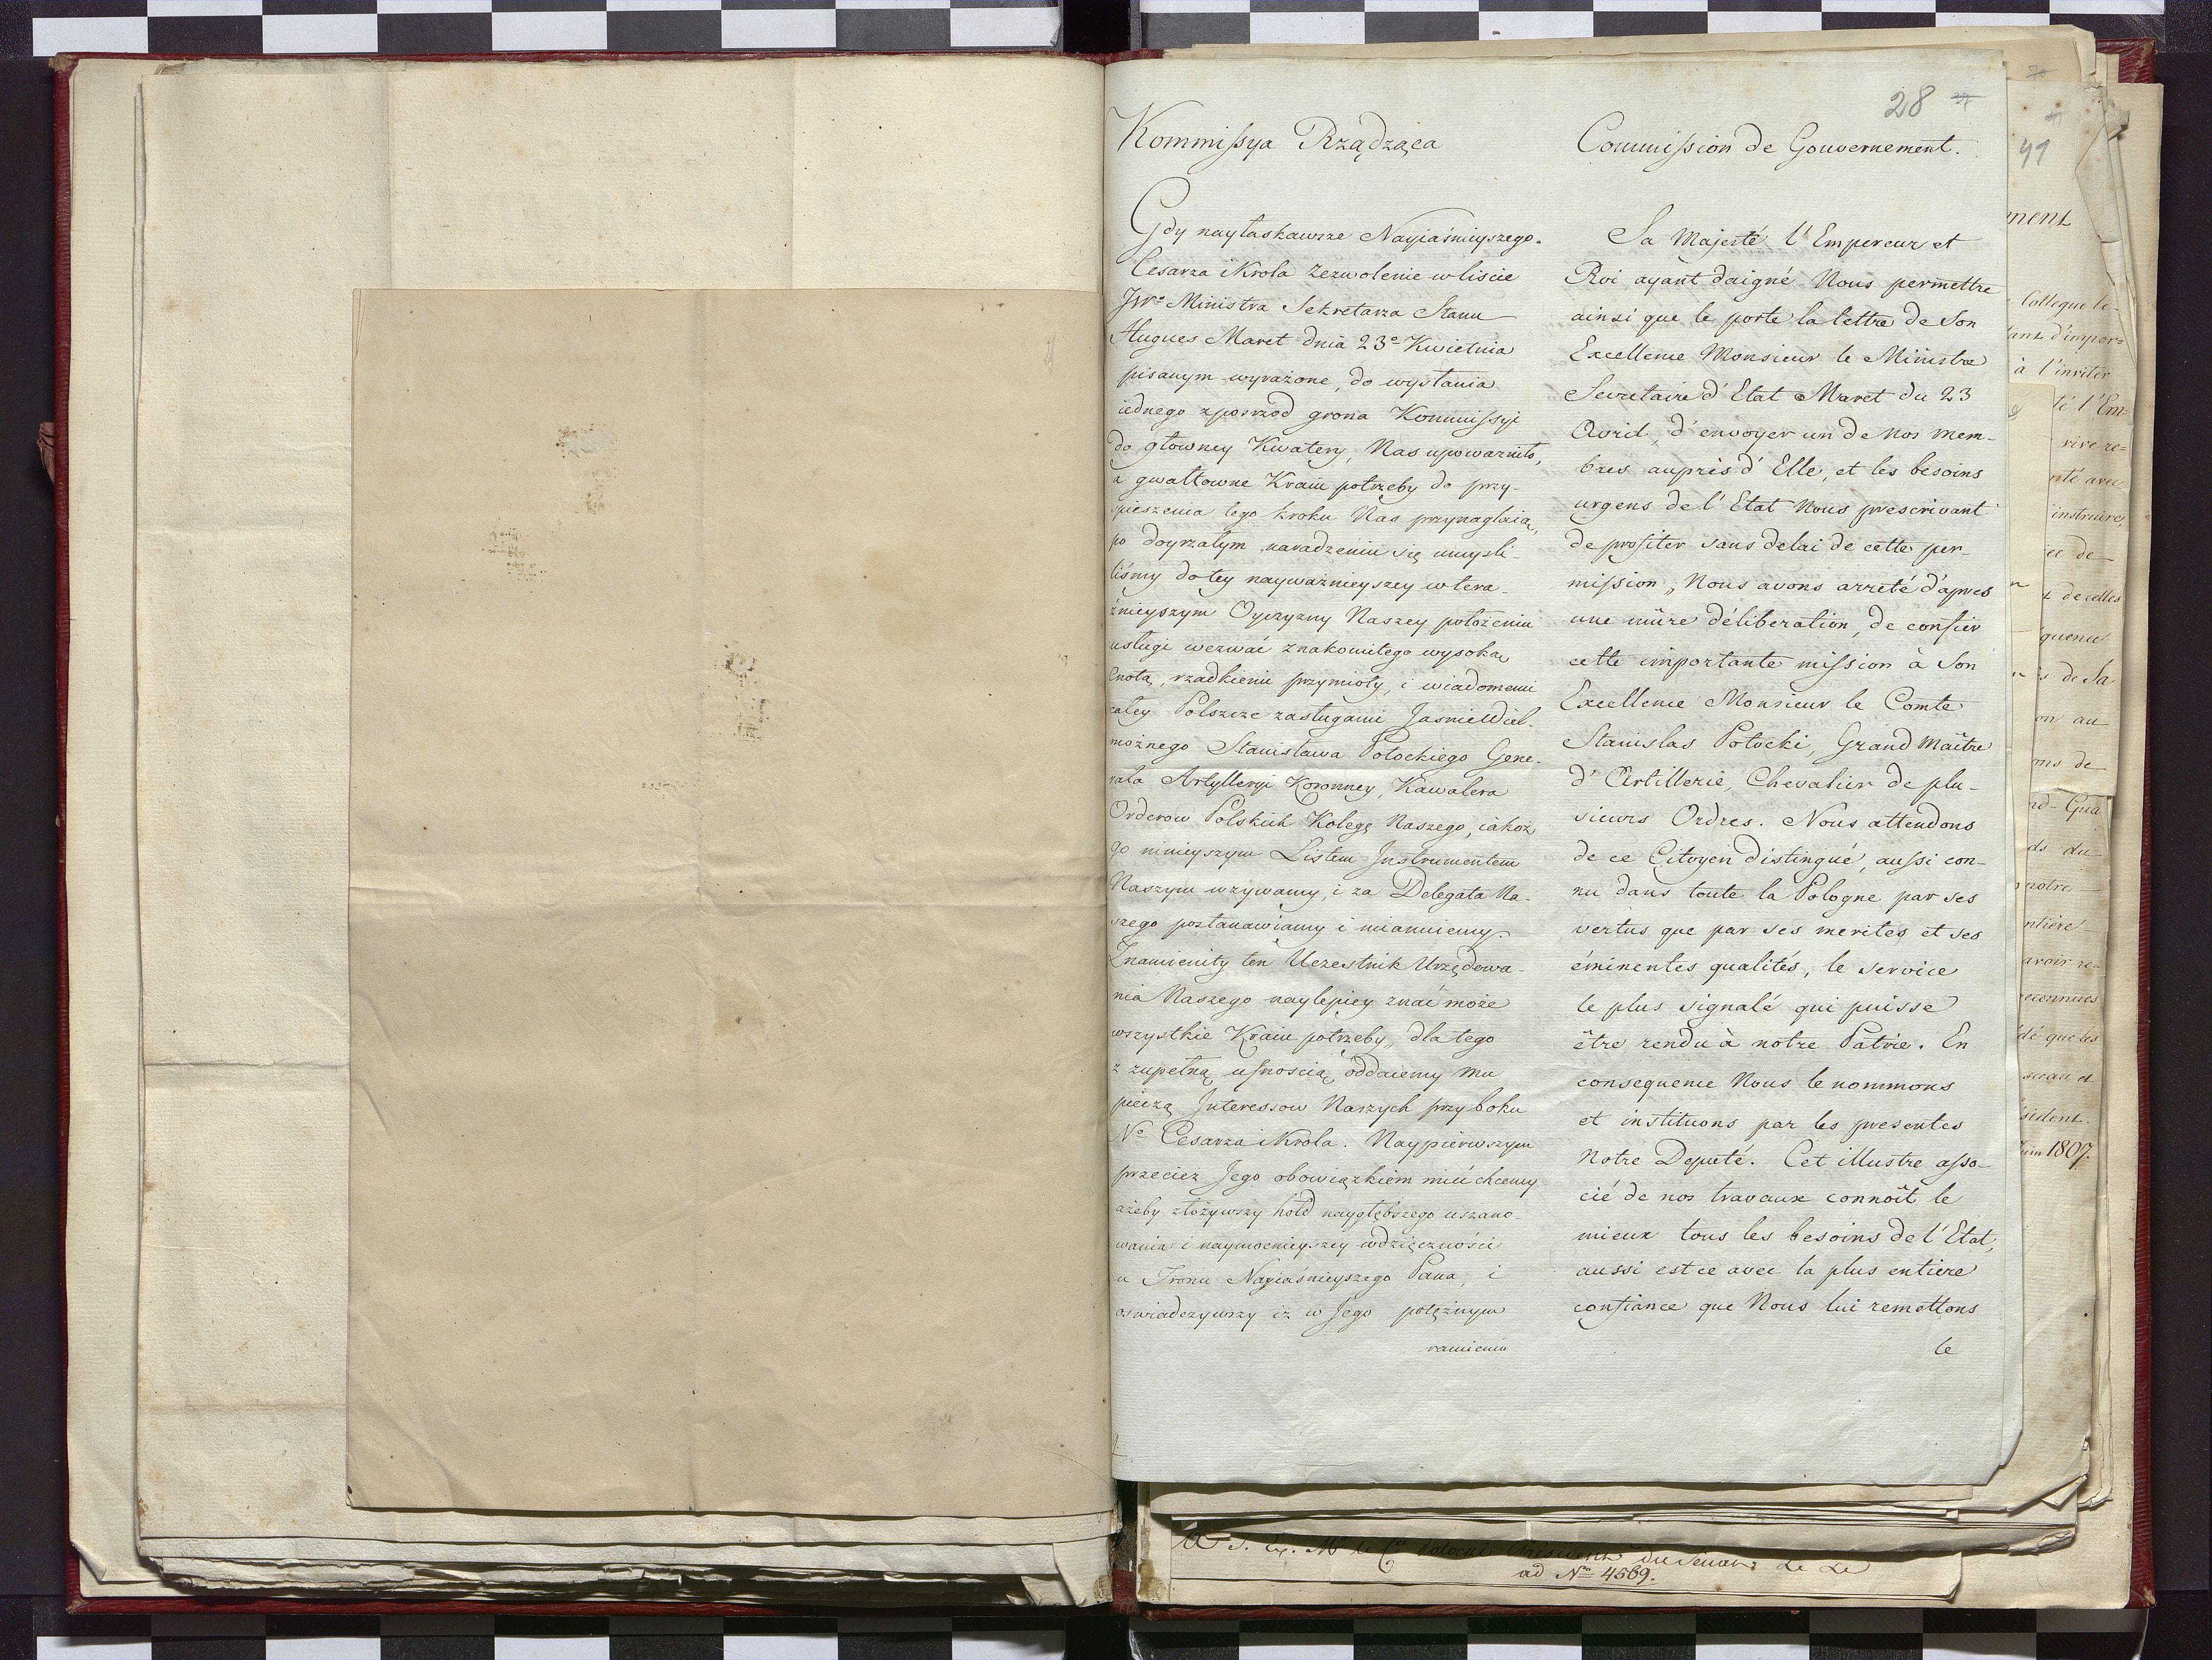 28
Kommissya Rządząca
Gdy naylaskawsze Nayiaśnieyszego
Cesarza i Krola Zezwolenie w liscie
JWo Ministra Sekretarza Stanu
Hugues Maret dnia 23o Kwietnia
pisanym wyrażone, do wysłania
iednego zposrzod grona Kommissyi
do głowney Kwatery, Nas upoważniło,
a gwałtowne Kraiu potrzeby do przy-
spieszenia tego kroku Nas przynaglaią,
po doyrzałym naradzeniu się umyśli-
liśmy do tey nayważnieyszey w tera-
źnieyszym Oyczyzny Naszey położeniu
usługi wezwać znakomitego wysoką
Cnotą, rzadkiemi przymioty, i wiadomemi
całey Polszcze zasługami JaśnieWiel-
możnego Stanisława Potockiego Gene-
rała Artylleryi Koronney Kawalera
Orderow Polskich Kolegę Naszego, iakoż
go ninieyszym Listem Instrumentem
Naszym wzywamy, i za Delegata Na-
szego postanawiamy i mianuiemy.
Znamienity ten Uczestnik Urzędowa-
nia Naszego naylepiey znać może
wszystkie Kraiu potrzeby, dla tego
z zupełną ufnoscią oddaiemy mu
pieczą Interessow Naszych przy boku
No Cesarza i Krola. Naypierwszym
przecież Jego obowiązkiem mieć chcemy
ażeby złożywszy hołd naygłębszego uszano-
wania i naymocnieyszey wdzięczności
u Tronu Nayiaśnieyszego Pana, i
oswiadczywszy iż w Jego potężnym
ramieniu
Commission de Gouvernement.
Sa Majesté l'Empereur et
Roi ayant daigné Nous permettre
ainsi que le porte la lettre de Son
Excellence Monsieur le Ministre
Secretaire d'Etat Maret du 23
Avril, d'envoyer un de Nos mem-
bres auprès d'Elle, et les besoins
urgens de l'Etat Nous prescrivant
de profiter sans delai de cette per-
mission, Nous avons arreté d'apres
une mûre déliberation, de confier
cette importante mission à Son
Excellence Monsieur le Comte
Stanislas Potocki, Grand Maître
d'Artillerie, Chevalier de plu-
sieurs Ordres. Nous attendons
de ce Citoyen distingué, aussi con-
nu dans toute la Pologne par ses
vertus que par ses merites et ses
éminentes qualités, le service
le plus signalé qui puisse
être rendu à notre Patrie. En
consequence Nous le nommons
et instituons par les presentes
Notre Deputé. Cet illustre asso-
cié de nos travaux connoit le
mieux tous les besoins de l'Etat,
aussi est ce avec la plus entiere
confiance que Nous lui remettons
le
41
ment
Collegue le
ant d'impor=
à l'inviter
té l'Em
vive re=
nté avec
instruire,
ce de
t de celles
quence
s de Sa
on au
ons de
nd-Gua
ds du
notre
ntiere
avoir re-
reconnues
dé que les
sceau et
sident.
Juin 1807.
A S. Ex. Mr le Cte Potocki President du Senat &c &c
ad No 4569.